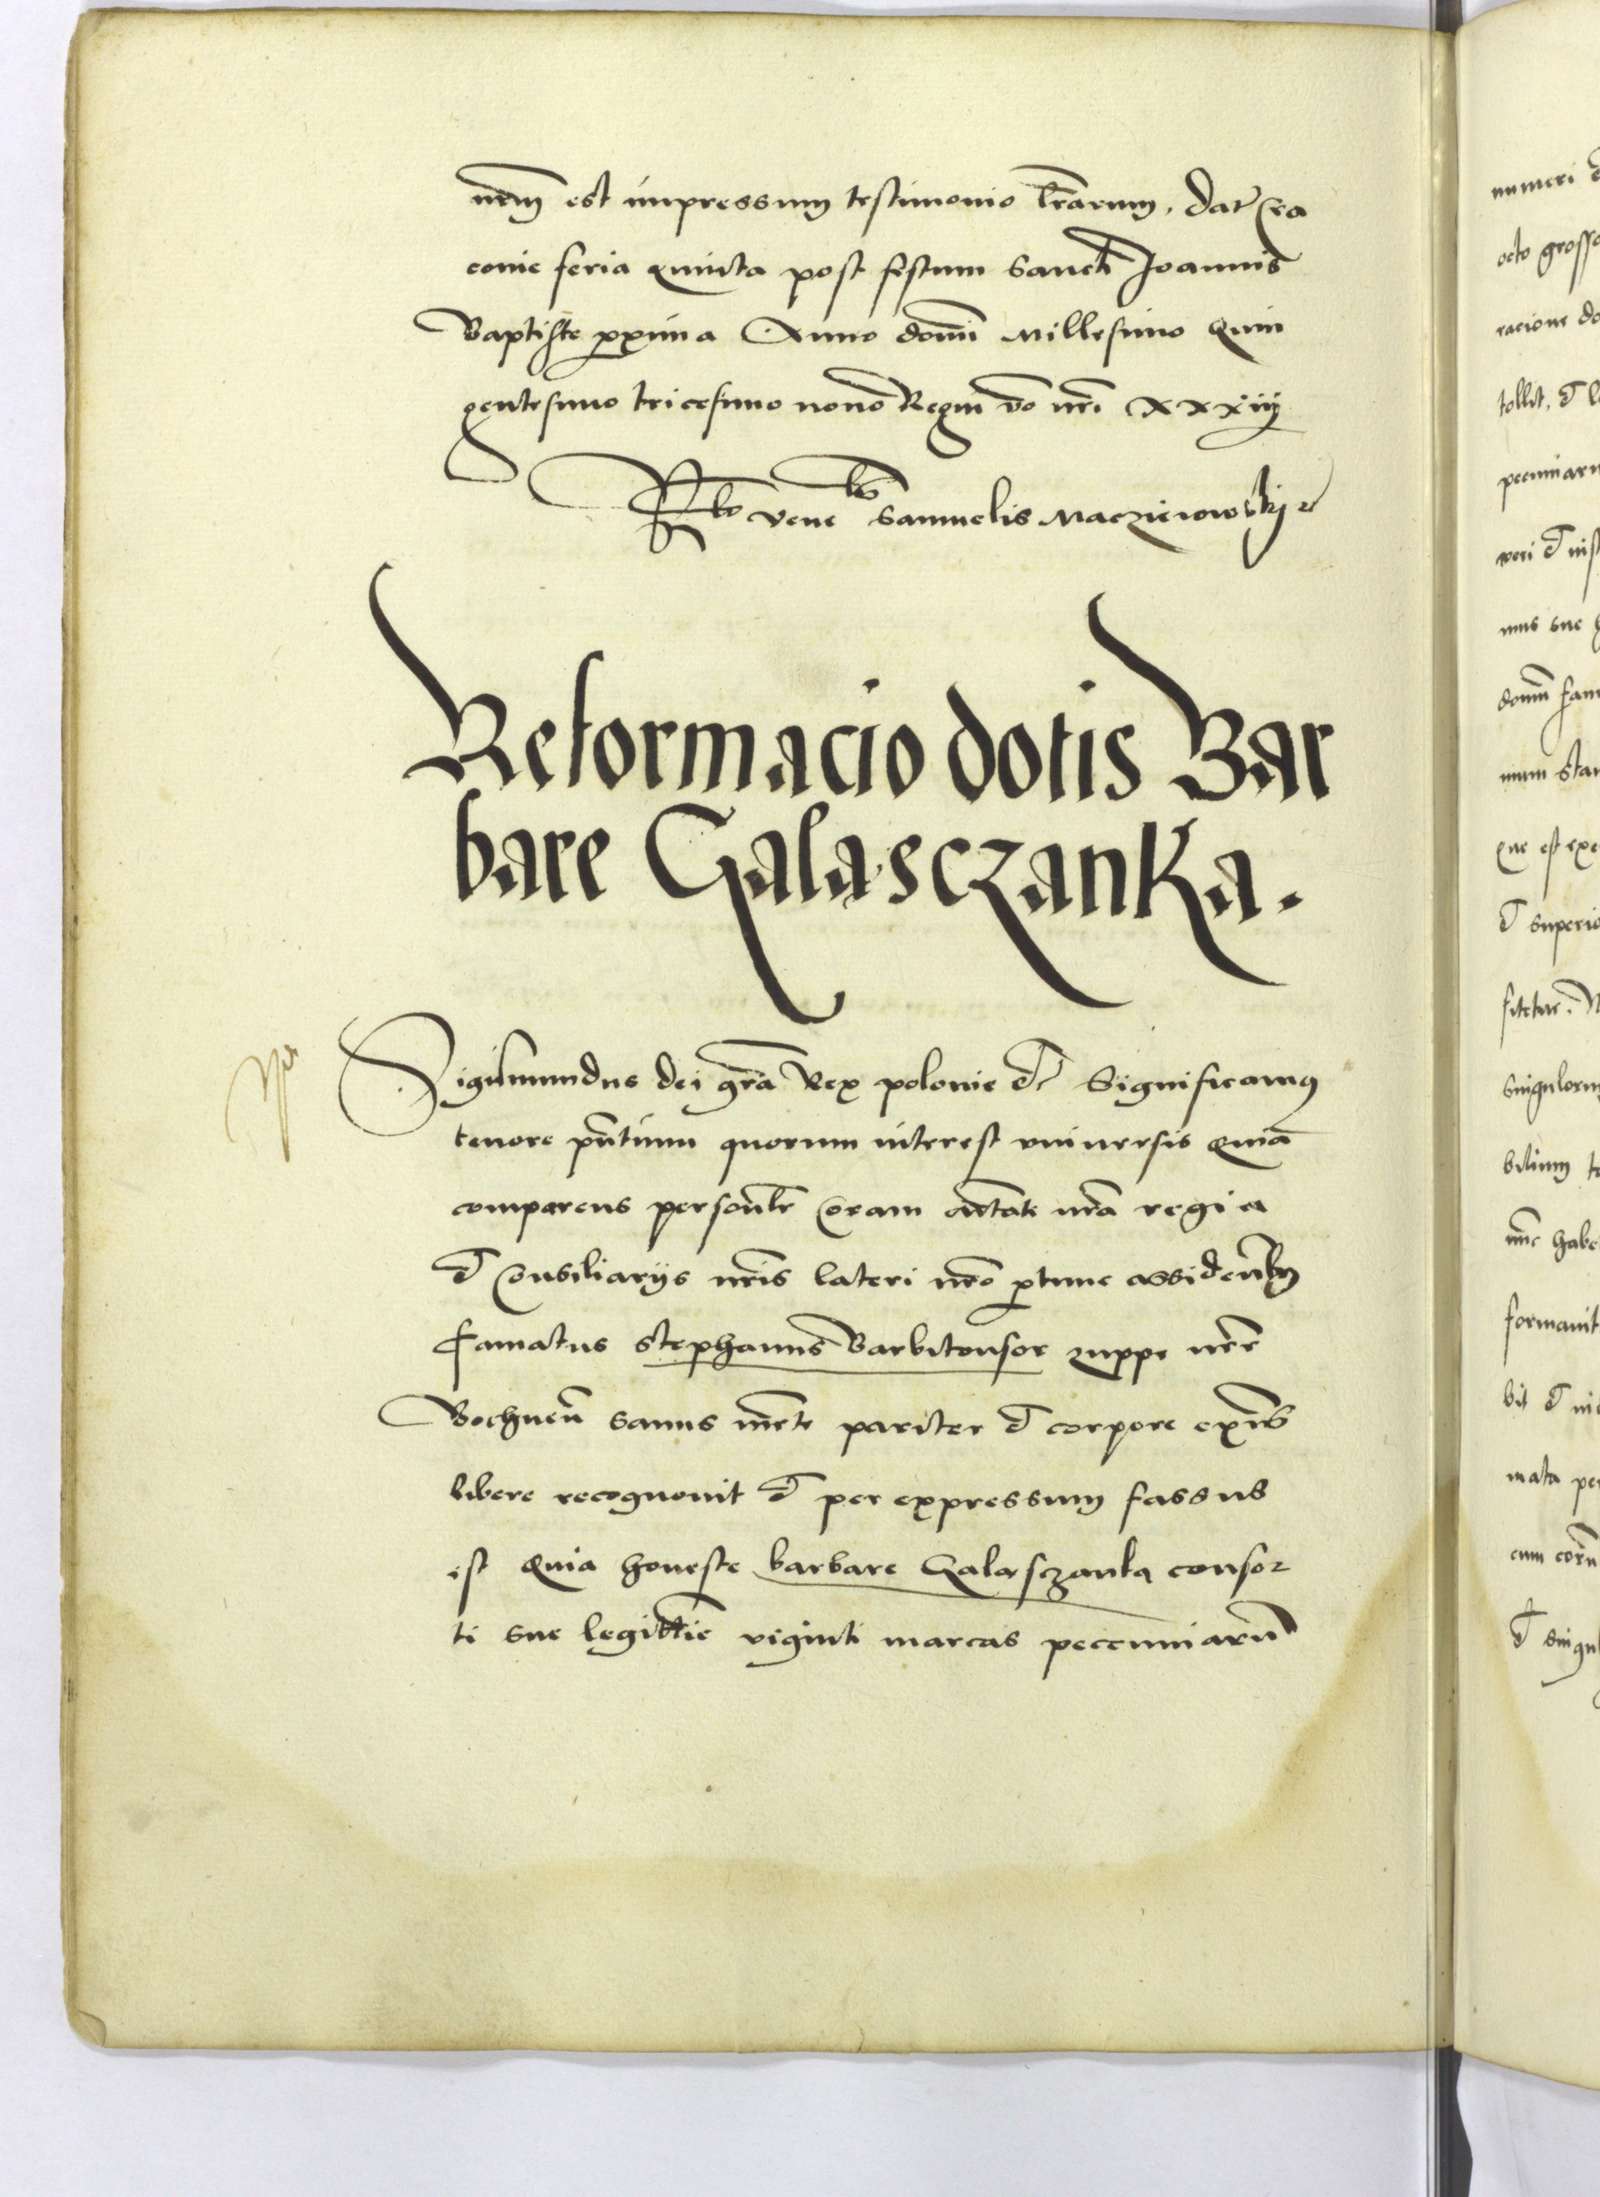 nrm est impressum testimonio lrarum. Dat Cra
covie feria quinta post festum Sancti Joannis
Baptiste proxima Anno domi Millesimo Quin
gentesimo tricesimo nono Regni vo nri XXXiij
Rlo vene lis Samuelis Maczieiowskij
Reformacio dotis Bar
bare Galasczanka.
Sigismundus dei gra Rex polonie etc Significamus
tenore pntium quorum interest universis quia
comparens personlr Coram Mtate nra regia
et Consiliarijs nris lateri nro ptunc assidentibus
Famatus Stephanus Barbitonsor zuppe nre
Bochnen sanus mente pariter et corpore exns
libere recognovit et per expressum fassus
est Quia honeste barbare Galasczanka consor
ti sue legittime viginti marcas peccuniarum
numeri
octo grosso
racione do
tollit, et
pecuniaru
veri et
mus sue
domum fam
num stan
que est exe
et superio
fitetur.
Singulorum
bilium
nunc habe
formavit
bit et
mata per
cum
et singul